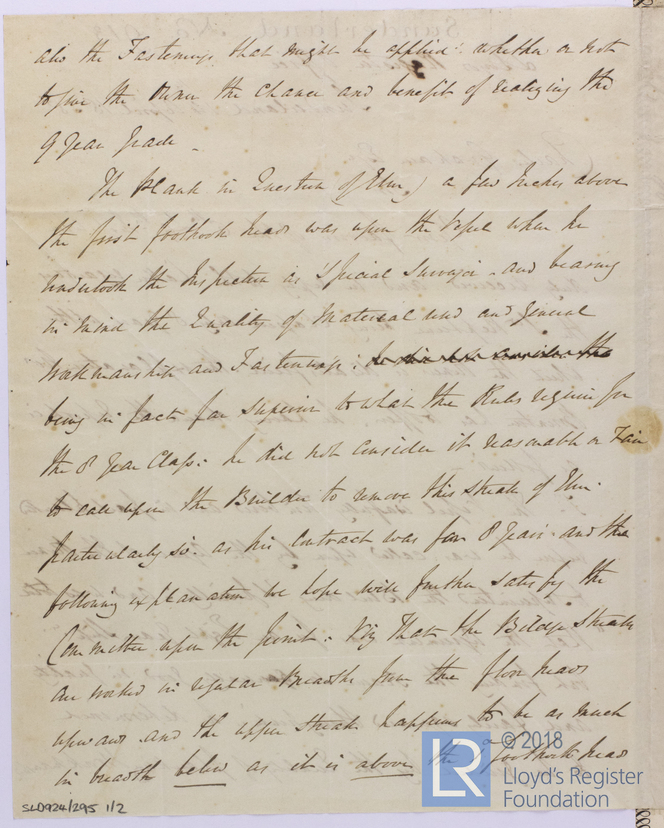 also the Fastenings that might be applied: whether or not
to give the Owner the Chance and benefit of realizing the
9 Year Grade -
The Plank in Question (of Elm) a few Inches above
the first foothook heads was upon the Vessel when he
undertook the Inspection as Special Surveyor - and bearing
in mind the Quality of Material used and general
workmanship and Fastenings: he did not consider the
being in fact far superior to what the Rules require for
the 8 Year Class: he did not consider it reasonable or Fair
to call upon the Builder to remove this strake of Elm
particularly so. as his Contract was for 8 Years - and the
following explanation we hope will further satisfy the
Committee upon the point: Viz That the Bilge Strakes
are worked in regular Breadth from the floor heads
upwards and the upper strake happens to be as much
in breadth below as it is above the 1st foothook head
SLD924/295 1/2
LR
© 2018
Lloyd's Register
Foundation